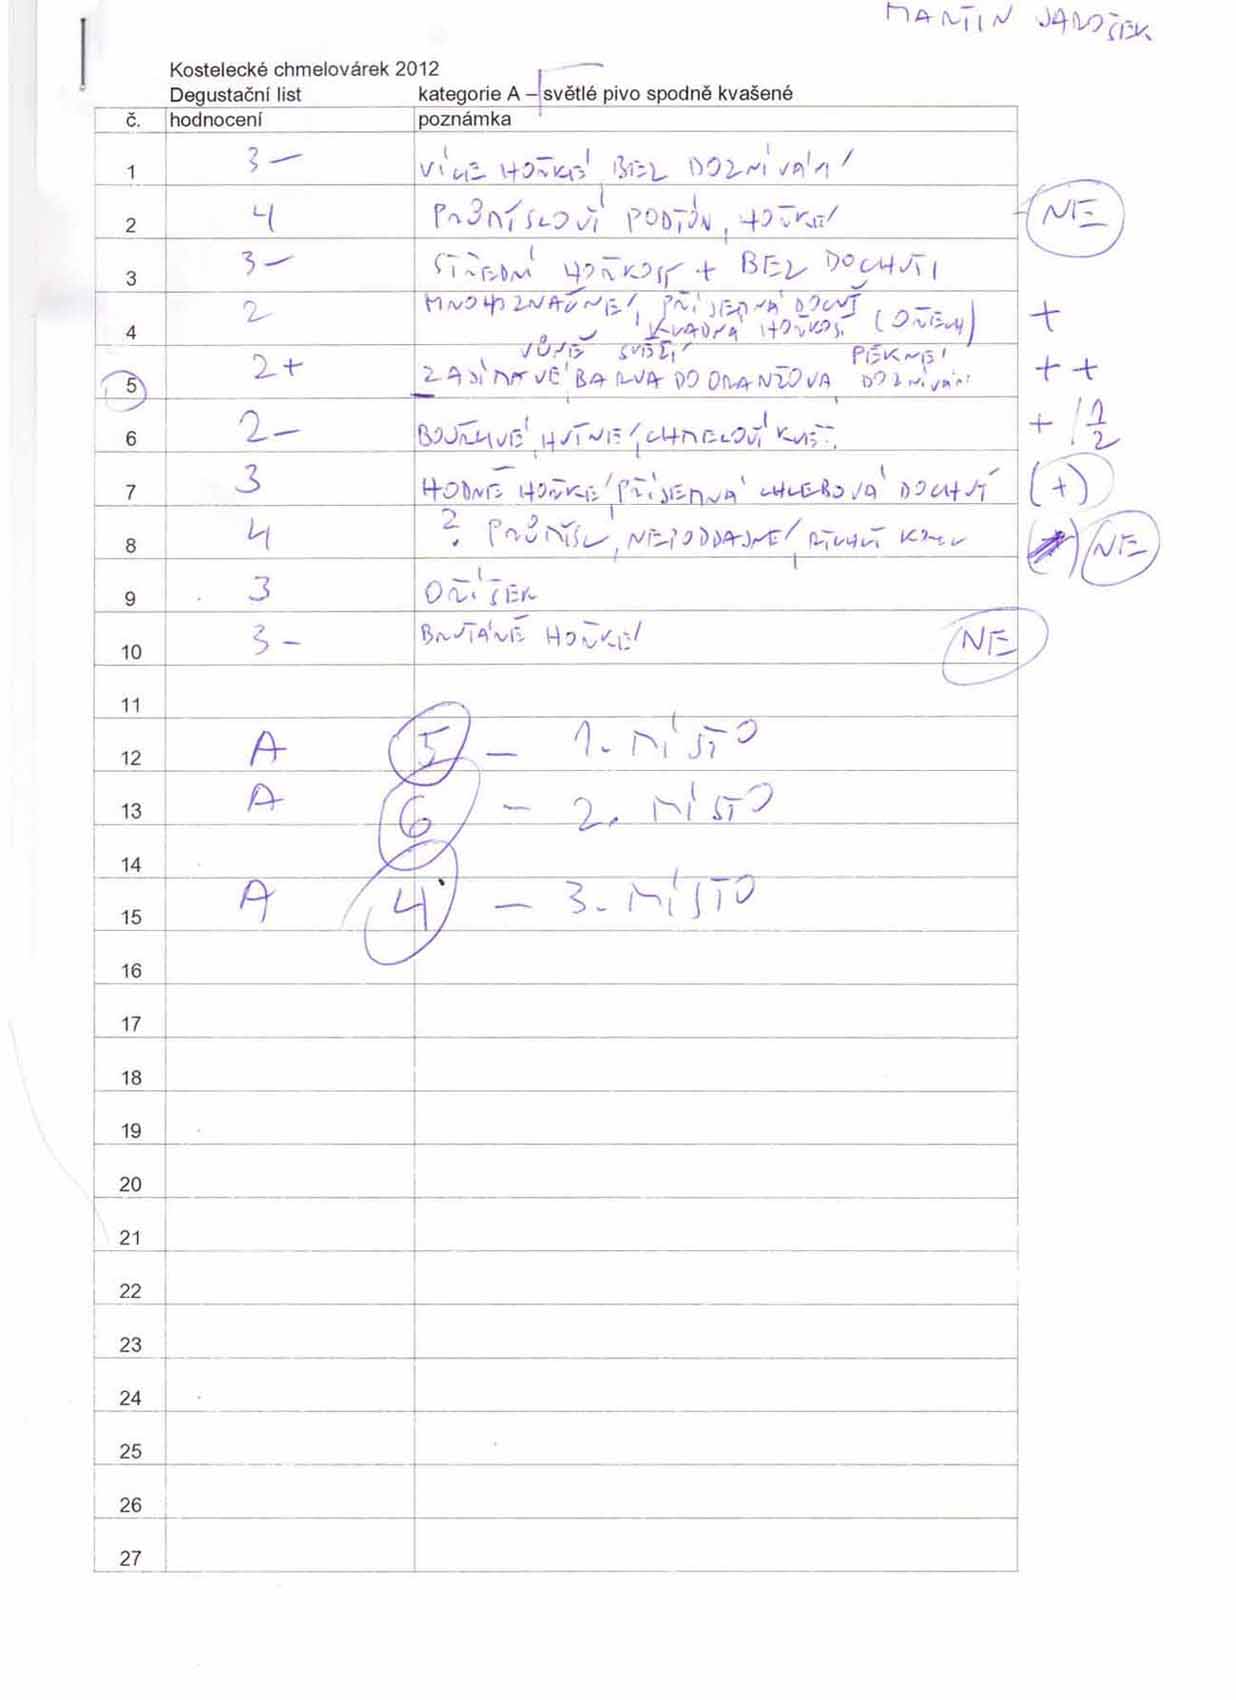 MARTIN JAROŠEK
Kostelecké chmelovárek 2012
Degustační list kategorie A – světlé pivo spodně kvašené
č. hodnocení poznámka
1 3– VÍCE HOŘKÉ, BEZ DOZNÍVÁNÍ
2 4 PRŮMYSLOVÝ PODTÓN, HOŘKÉ NE
3 3– STŘEDNÍ HOŘKOST + BEZ DOCHUTI
4 2 MNOHOZNAČNÉ, PŘÍJEMNÁ DOCHUŤ +
HOŘKOST (OŘECH)
VŮNĚ SVĚŽÍ PĚKNÉ
5 2+ ZAJÍMAVÉ BARVA DO ORANŽOVA DOZNÍVÁNÍ + +
6 2– BOUŘLIVÉ, HUTNÉ, CHMELOVÝ KVĚT + / 1/2
7 3 HODNĚ HOŘKÉ, PŘÍJEMNÁ CHLEBOVÁ DOCHUŤ (+)
8 4 ? PRŮMYSL, NEPODDAJNÉ, NE
9 3 OŘÍŠEK
10 3– BRUTÁLNĚ HOŘKÉ NE
11
12 A 5 – 1. MÍSTO
13 A 6 – 2. MÍSTO
14
15 A 4 – 3. MÍSTO
16
17
18
19
20
21
22
23
24
25
26
27